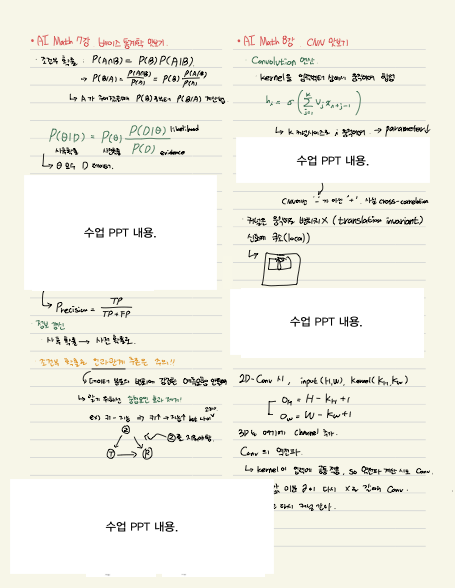 • AI Math 7강 베이즈 통계학 맛보기.
· 조건부 확률. P(A∩B) = P(B) P(A|B)
→ P(B|A) = P(A∩B)/P(A) = P(B) P(A|B)/P(A)
↳ A가 주어졌을때 P(B)로부터 P(B|A) 계산법.
P(θ|D) = P(θ) P(D|θ)/P(D) likelihood
사후확률 사전확률 evidence
↳ θ 모수 D 데이터.
수업 PPT 내용.
↳ Precision = TP/TP+FP
정보 갱신
· 사후 확률 → 사전 확률로.
조건부 확률로 인과관계 추론은 주의!!
→ 중첩요인 효과 제거!
ex) 키 - 지능 ⇒ 키↑ → 지능↑ but 나이
Z
T → R
수업 PPT 내용.
• AI Math 8강 CNN 맛보기
· Convolution 연산
kernel을 입력벡터 상에서 움직여가며 적용
h_i = σ(Σ_{j=1}^{k} V_j x_{i+j-1})
↳ k 커널사이즈로 i 움직여가며. → parameter↓
수업 PPT 내용.
CNN에선 '-'가 아닌 '+'. 사실 cross-correlation
· 커널은 움직여도 변하지X (translation invariant)
신호에 국소(local)
수업 PPT 내용.
2D-Conv 시, input(H,W), kernel(K_H, K_W)
O_H = H - K_H + 1
O_W = W - K_W + 1
3D는 여기에 channel 추가.
Conv 의 역전파.
↳ kernel이 입력에 공통 적용, so 역전파 계산 시도 Conv.
다시 커널 같아.